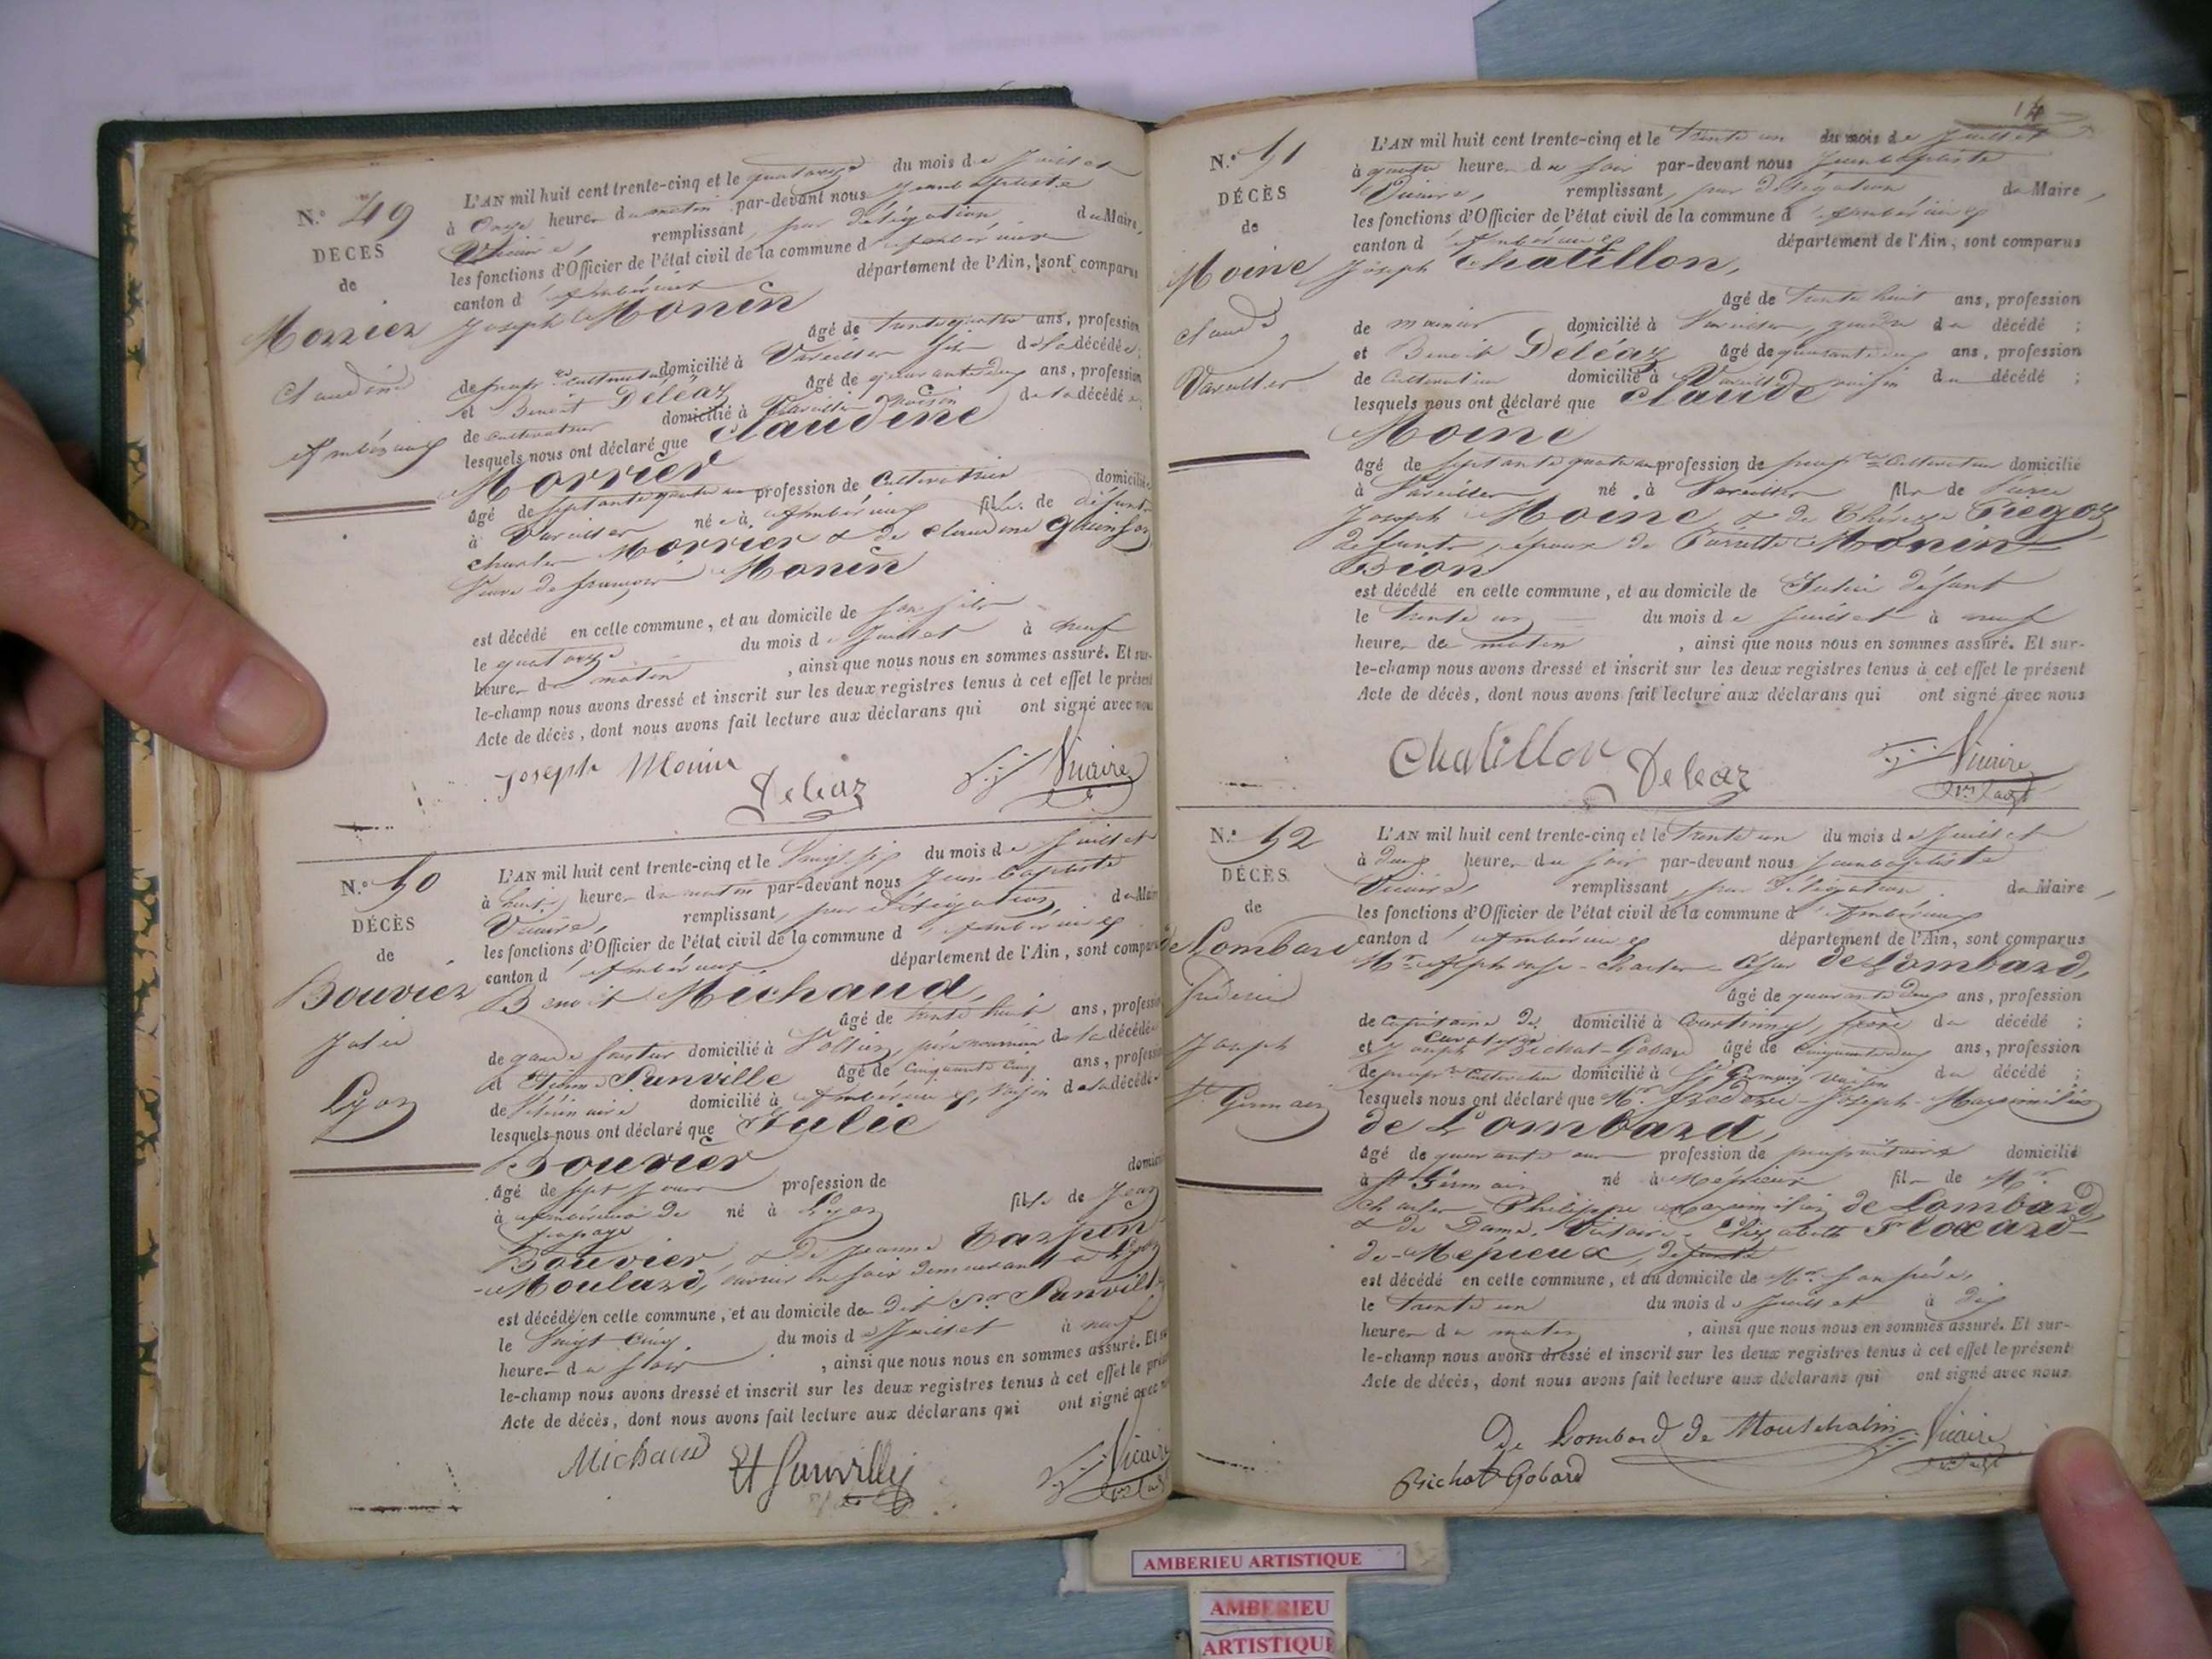 N.º 49
DÉCÈS
de
Morrier
Claudine
Ambérieux
L'AN mil huit cent trente-cinq et le quatorze du mois de Juillet
à onze heures du matin par-devant nous Jean Baptiste
Vicaire, remplissant, par délégation du Maire,
les fonctions d'Officier de l'état civil de la commune d'Ambérieux
canton d'Ambérieux département de l'Ain, sont comparus
Joseph Monin
âgé de trente quatre ans, profession
de propre cultivateur domicilié à Vareilles fils de la décédée;
et Benoit Deléaz âgé de quarante deux ans, profession
de cultivateur domicilié à Vareilles voisin de la décédée;
lesquels nous ont déclaré que Claudine
Morrier
âgé de septante quatre ans profession de Cultivatrice domiciliée
à Vareilles née à Ambérieux fille de défunts
Charles Morrier & de Claudine
Veuve de françois Monin
est décédé en cette commune, et au domicile de son fils
le quatorze du mois de Juillet à neuf
heures du matin, ainsi que nous nous en sommes assuré. Et sur-
le-champ nous avons dressé et inscrit sur les deux registres tenus à cet effet le présent
Acte de décès, dont nous avons fait lecture aux déclarans qui ont signé avec nous
Joseph Monin Deleaz Vicaire
N.º 50
DÉCÈS
de
Bouvier
Julie
Lyon
L'AN mil huit cent trente-cinq et le Vingt six du mois de Juillet
à huit heures du matin par-devant nous Jean Baptiste
Vicaire, remplissant, par délégation du Maire
les fonctions d'Officier de l'état civil de la commune d'Ambérieux
canton d'Ambérieux département de l'Ain, sont comparus
Benoit Michaud,
âgé de trente huit ans, profession
de garde forestier domicilié à père nourricier de la décédée
et Etienne Sunville âgé de cinquante cinq ans, profession
de Vétérinaire domicilié à Ambérieux, voisin de la décédée
lesquels nous ont déclaré que Julie
Bouvier
âgé de sept jours profession de domicilié
à Ambérieux de né à Lyon fille de Jean
passage
Bouvier, & de Jeanne Carpin
Moulard, ouvrier en soie demeurant à Lyon
est décédé en cette commune, et au domicile du dit Sr Sunville
le Vingt cinq du mois de Juillet à neuf
heures du soir, ainsi que nous nous en sommes assuré. Et sur
le-champ nous avons dressé et inscrit sur les deux registres tenus à cet effet le présent
Acte de décès, dont nous avons fait lecture aux déclarans qui ont signé avec nous
Michaud Et Sunville Vicaire
N.º 51
DÉCÈS
de
Moine
Claude
Vareilles
L'AN mil huit cent trente-cinq et le trente un du mois de Juillet
à quatre heures du soir par-devant nous Jean baptiste
Vicaire, remplissant, par délégation du Maire,
les fonctions d'Officier de l'état civil de la commune d'Ambérieux
canton d'Ambérieux département de l'Ain, sont comparus
Joseph Chatillon,
âgé de trente huit ans, profession
de domicilié à Vareilles, gendre du décédé;
et Benoit Deléaz âgé de quarante deux ans, profession
de Cultivateur domicilié à Vareilles voisin du décédé;
lesquels nous ont déclaré que Claude
Moine
âgé de septante quatre ans profession de propre Cultivateur domicilié
à Vareilles né à Vareilles fils de
Joseph Moine & de Thérèse Tregoz
défunts, époux de Pierrette Monin-
Bion
est décédé en cette commune, et au domicile de défunt
le trente un du mois de Juillet à neuf
heures du matin, ainsi que nous nous en sommes assuré. Et sur-
le-champ nous avons dressé et inscrit sur les deux registres tenus à cet effet le présent
Acte de décès, dont nous avons fait lecture aux déclarans qui ont signé avec nous
Chatillon Deleaz Vicaire
N.º 52
DÉCÈS
de
de Lombard
fréderic
Joseph
St Germain
L'AN mil huit cent trente-cinq et le trente un du mois de Juillet
à deux heures du soir par-devant nous Jean baptiste
Vicaire, remplissant, par délégation du Maire,
les fonctions d'Officier de l'état civil de la commune d'Ambérieux
canton d'Ambérieux département de l'Ain, sont comparus
Mr Alphonse-Charles-César de Lombard,
âgé de quarante deux ans, profession
de Capitaine de domicilié à frère du décédé;
et Joseph Bichat-Gobard âgé de Cinquante deux ans, profession
de propre Cultivateur domicilié à St Germain voisin du décédé;
lesquels nous ont déclaré que Mr Fréderic-Joseph-Maximilien
de Lombard,
âgé de quarante ans profession de propriétaire domicilié
à St Germain né à Mépieux fils de Mr
Charles-Philippe Maximilien de Lombard,
& de Dame Victoire-Elizabeth Floxard-
de-Mépieux, défunte
est décédé en cette commune, et au domicile de Mr son père,
le trente un du mois de Juillet à dix
heures du matin, ainsi que nous nous en sommes assuré. Et sur-
le-champ nous avons dressé et inscrit sur les deux registres tenus à cet effet le présent
Acte de décès, dont nous avons fait lecture aux déclarans qui ont signé avec nous
De Lombard de Vicaire
Bichat Gobard
AMBERIEU ARTISTIQUE
AMBERIEU
ARTISTIQUE